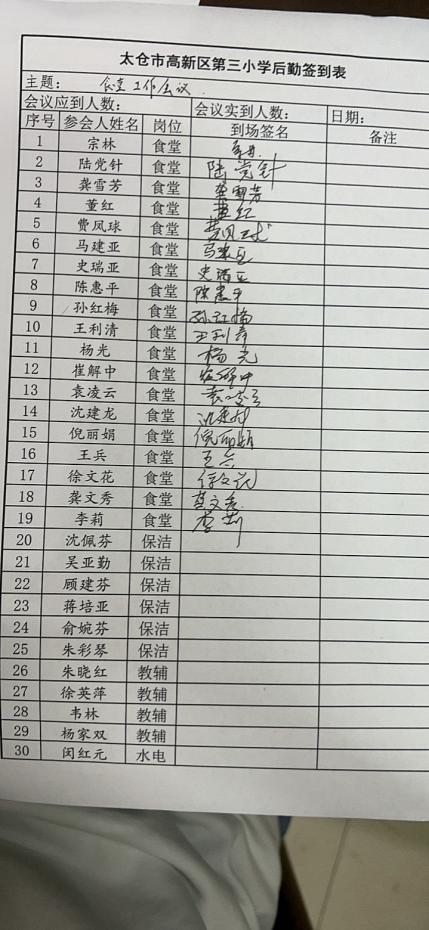 太仓市高新区第三小学后勤签到表
主题： 食堂工作会议.
会议应到人数： 会议实到人数： 日期：
序号 参会人姓名 岗位 到场签名 备注
1 宗林 食堂
2 陆党针 食堂 陆党针
3 龚雪芳 食堂 龚雪芳
4 董红 食堂 董红
5 费凤球 食堂 费凤球
6 马建亚 食堂 马建亚
7 史瑞亚 食堂 史瑞亚
8 陈惠平 食堂 陈惠平
9 孙红梅 食堂 孙红梅
10 王利清 食堂 王利清
11 杨光 食堂 杨光
12 崔解中 食堂 崔解中
13 袁凌云 食堂 袁凌云
14 沈建龙 食堂 沈建龙
15 倪丽娟 食堂 倪丽娟
16 王兵 食堂 王兵
17 徐文花 食堂 徐文花
18 龚文秀 食堂 龚文秀
19 李莉 食堂 李莉
20 沈佩芬 保洁
21 吴亚勤 保洁
22 顾建芬 保洁
23 蒋培亚 保洁
24 俞婉芬 保洁
25 朱彩琴 保洁
26 朱晓红 教辅
27 徐英萍 教辅
28 韦林 教辅
29 杨家双 教辅
30 闵红元 水电